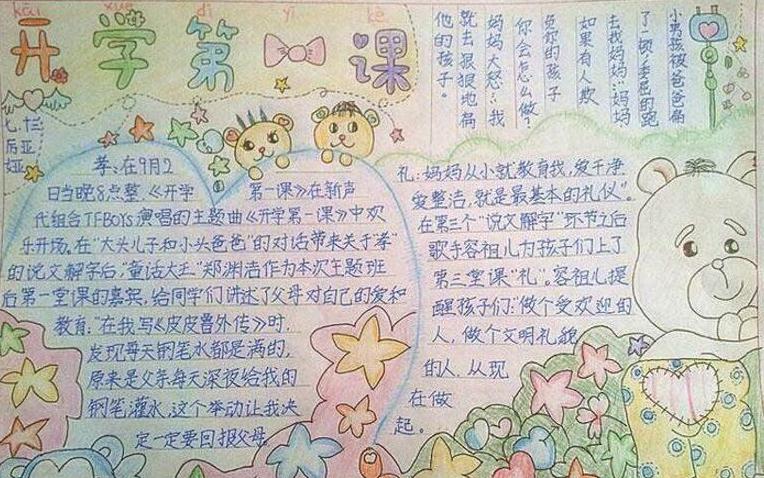 kāi xué dì yī kè
开学第一课
小男孩被爸爸扁
了一顿，委屈的跑
去找妈妈：“妈妈
如果有人欺
负你的孩子
你会怎么做？
妈妈大怒：“我
就去狠狠地扁
他的孩子。
七、十三
历亚
娅
孝：在9月2
日当晚8点整《开学第一课》在新声
代组合TFBOYS演唱的主题曲《开学第一课》中欢
乐开场。在“大头儿子和小头爸爸”的对话带来关于“孝”
的说文解字后，“童话大王”郑渊洁作为本次主题班
后第一堂课的嘉宾，给同学们讲述了父母对自己的爱和
教育：“在我写《皮皮鲁外传》时，
发现每天钢笔水都是满的，
原来是父亲每天深夜给我的
钢笔灌水，这个举动让我决
定一定要回报父母。
礼：妈妈从小就教育我，爱干净
爱整洁，就是最基本的礼仪”。
在第三个“说文解字”环节之后
歌手容祖儿为孩子们上了
第三堂课“礼”。容祖儿提
醒孩子们：“做个受欢迎的
人，做个文明礼貌
的人，从现
在做
起。